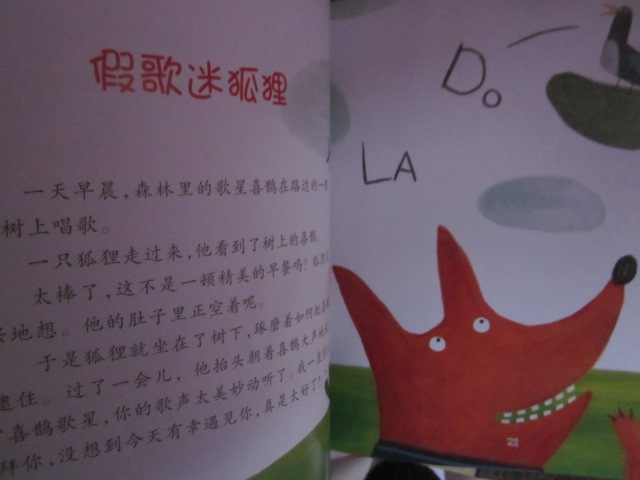 假歌迷狐狸
一天早晨,森林里的歌星喜鹊在路边的一
树上唱歌。
一只狐狸走过来,他看到了树上的喜鹊。
太棒了,这不是一顿精美的早餐吗?狐狸
地想。他的肚子里正空着呢。
于是狐狸就坐在了树下,琢磨着如何把喜
逮住。过了一会儿,他抬头朝着喜鹊大声地
喜鹊歌星,你的歌声太美妙动听了。我一直
拜你,没想到今天有幸遇见你,真是太好了!
Do
LA
21